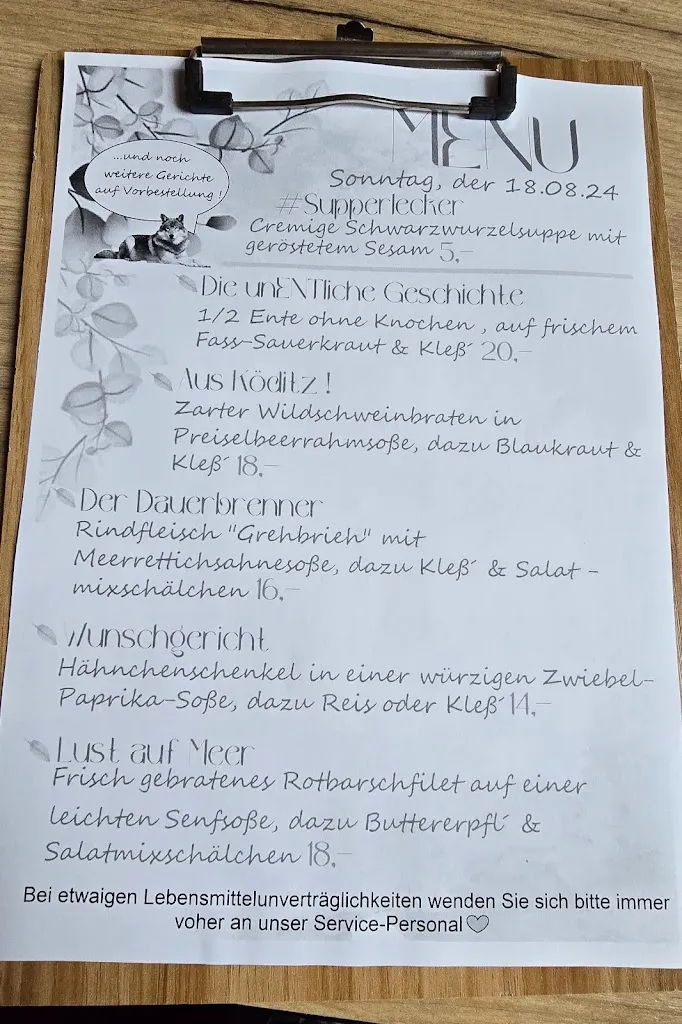 MENU
...und noch
weitere Gerichte
auf Vorbestellung !
Sonntag, der 18.08.24
#Supperlecker
Cremige Schwarzwurzelsuppe mit
geröstetem Sesam 5,-
Die unENTliche Geschichte
1/2 Ente ohne Knochen , auf frischem
Fass-Sauerkraut & Kleß´ 20,-
Aus Köditz !
Zarter Wildschweinbraten in
Preiselbeerrahmsoße, dazu Blaukraut &
Kleß´ 18,-
Der Dauerbrenner
Rindfleisch "Grehbrieh" mit
Meerrettichsahnesoße, dazu Kleß´ & Salat -
mixschälchen 16,-
Wunschgericht
Hähnchenschenkel in einer würzigen Zwiebel-
Paprika-Soße, dazu Reis oder Kleß´ 14,-
Lust auf Meer
Frisch gebratenes Rotbarschfilet auf einer
leichten Senfsoße, dazu Buttererpfl´ &
Salatmixschälchen 18,-
Bei etwaigen Lebensmittelunverträglichkeiten wenden Sie sich bitte immer
voher an unser Service-Personal♡